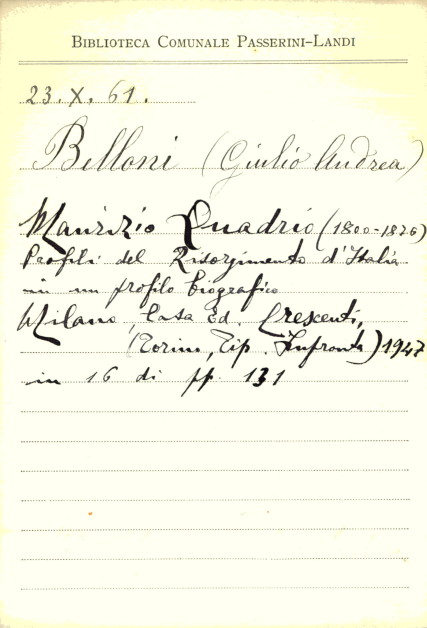 BIBLIOTECA COMUNALE PASSERINI-LANDI
23.X.61.
Belloni (Giulio Andrea)
Maurizio Quadrio (1800-1876)
Profili del Risorgimento d'Italia
in un profilo biografico
Milano, Casa Ed. Crescenti,
(Torino, Tip. Impronta) 1947
in 16 di pp. 131